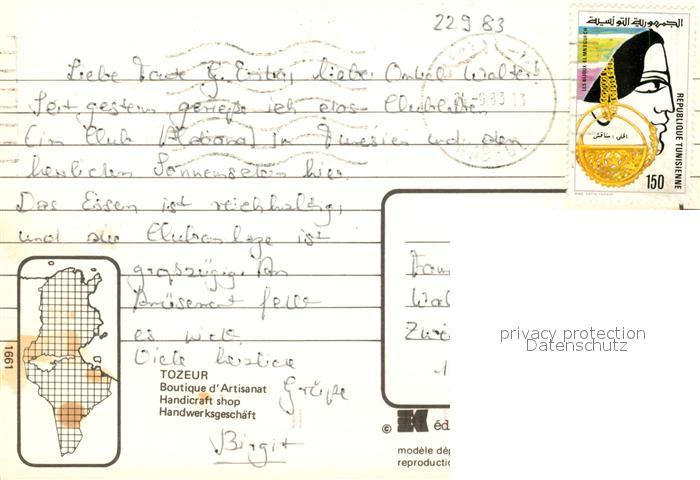 22 9 83
Liebe Tante, lieber Onkel Walter!
Seit gestern genieße ich das Clubleben
(im Club) in Tunesien und den
herrlichen Sonnenschein hier.
Das Essen ist reichhaltig,
und die Clubanlage ist
großzügig. An
Amüsement fehlt
es nicht.
Viele herzliche
Grüße
Birgit
الجمهورية التونسية
LES BIJOUX
REPUBLIQUE TUNISIENNE
150
9.83-13
1661
TOZEUR
Boutique d'Artisanat
Handicraft shop
Handwerksgeschäft
© éd
modèle dép
reproductio
privacy protection
Datenschutz